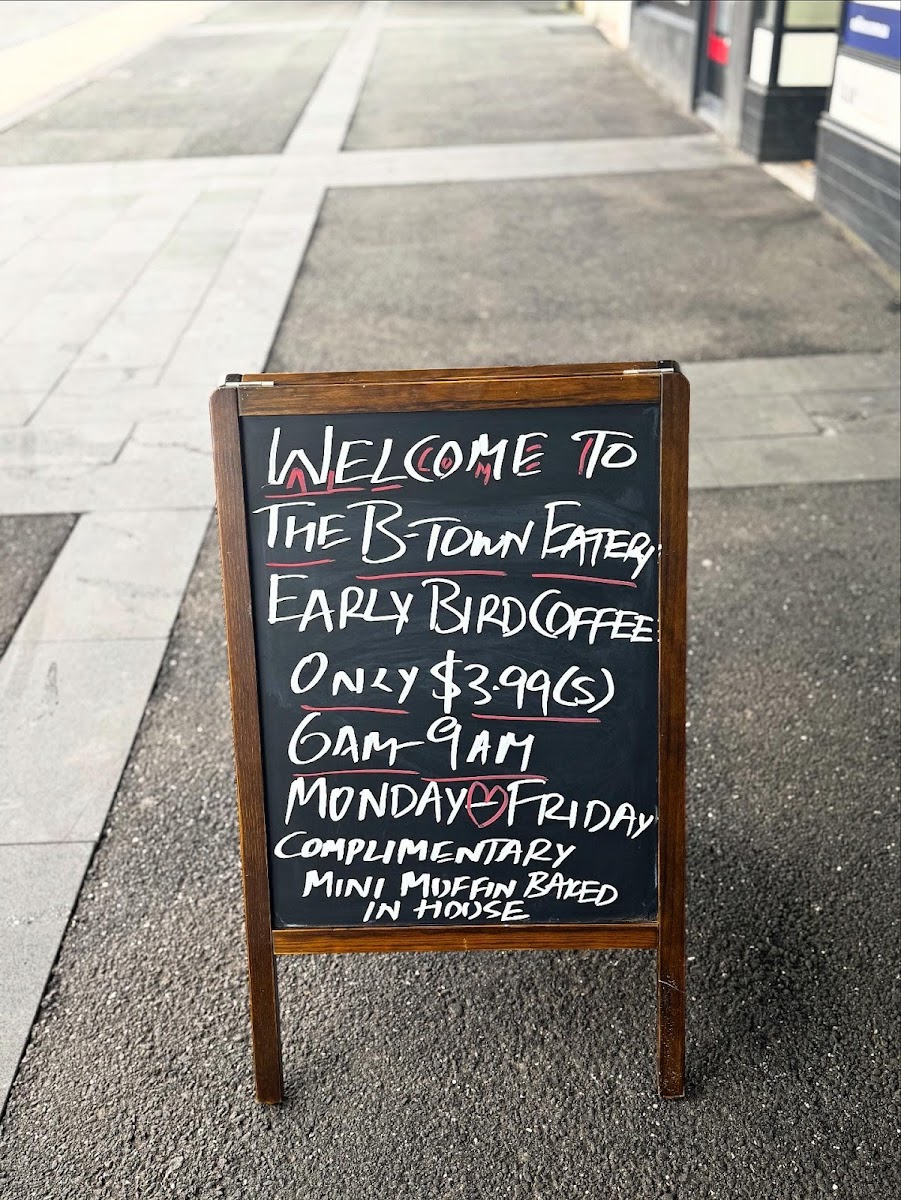 WELCOME TO
THE B-TOWN EATERY
EARLY BIRD COFFEE
ONLY $3.99(S)
6AM-9AM
MONDAY-FRIDAY
COMPLIMENTARY
MINI MUFFIN BAKED
IN HOUSE